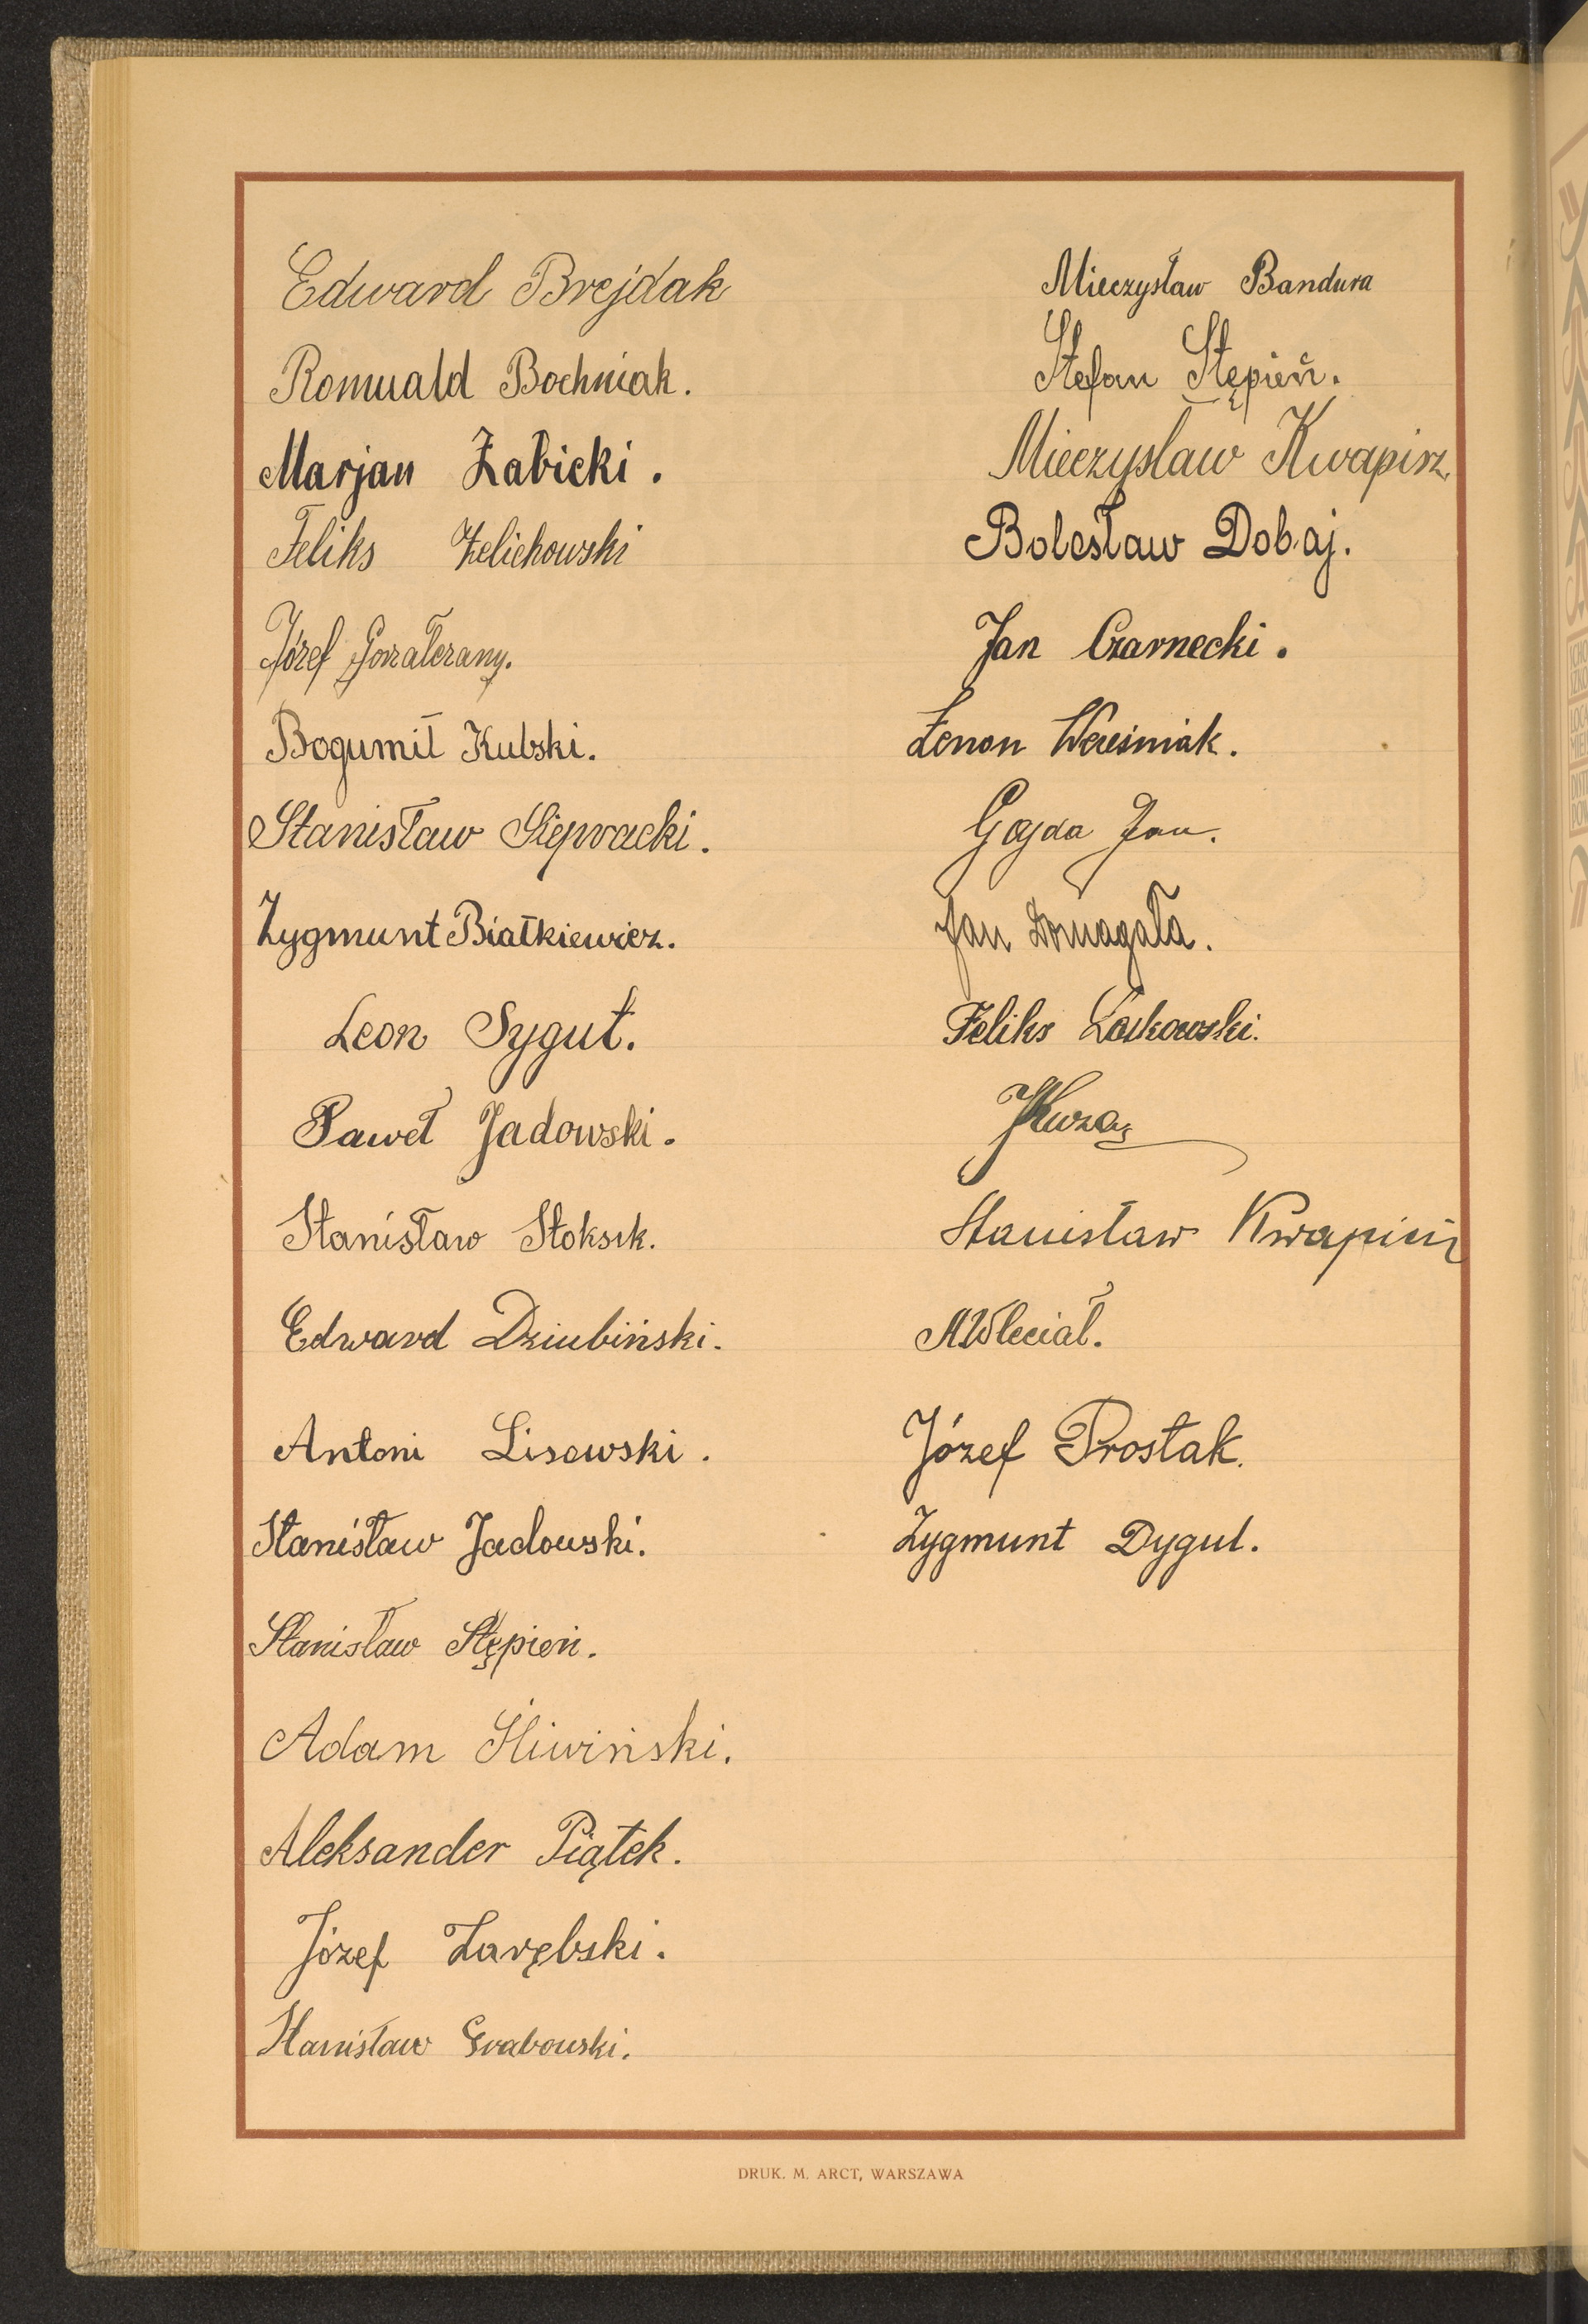 Edward Brejdak
Romuald Bochniak.
Marjan Żabicki.
Feliks Żelichowski
Józef
Bogumił Kubski.
Stanisław Siepracki.
Zygmunt Białkiewicz.
Leon Sygut.
Paweł Jadowski.
Stanisław Stoksik.
Edward Dziubiński.
Antoni Lisowski.
Stanisław Jadowski.
Stanisław Stępień.
Adam Śliwiński.
Aleksander Piątek.
Józef Zarębski.
Stanisław Grabowski.
Mieczysław Bandura
Stefan Stępień.
Mieczysław Kwapisz
Bolesław Dobaj.
Jan Czarnecki.
Zenon
Gajda Jan.
Jan Domagała.
Feliks Laskowski.
Stanisław Kwapisz
A Wleciał.
Józef Prostak.
Zygmunt Dygul.
DRUK. M. ARCT, WARSZAWA